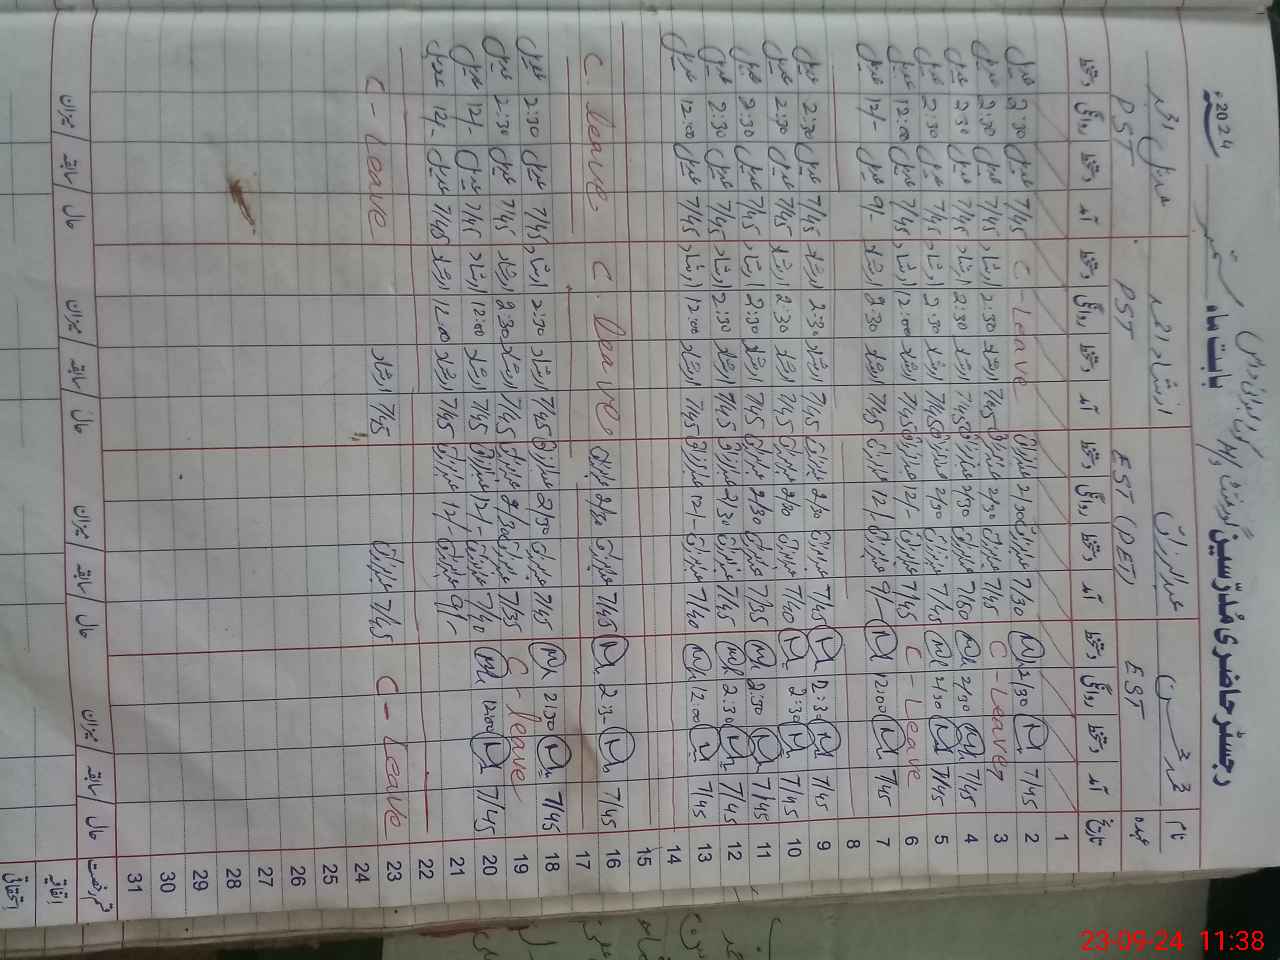 رجسٹر حاضری مُدرّسین گورنمنٹ بابت ماہ ستمبر 2024ء
نام محمد حسن عبدالرزاق ارشاد عدیل
عہدہ EST EST (PET) PST PST
تاریخ آمد دستخط روانگی دستخط آمد دستخط روانگی دستخط آمد دستخط روانگی دستخط آمد دستخط روانگی دستخط
1
2 7/45 2/30 7/30 عبدالرزاق 2/30 عبدالرزاق C-Leave 7/45 عدیل 2:30 عدیل
3 C-Leave 7/45 عبدالرزاق 2/30 عبدالرزاق 7/45 ارشاد 2:30 ارشاد 7/45 عدیل 2:30 عدیل
4 7/45 2/30 7/50 عبدالرزاق 2/30 عبدالرزاق 7/45 ارشاد 2:30 ارشاد 7/45 عدیل 2:30 عدیل
5 7/45 2/30 7/45 عبدالرزاق 2/30 عبدالرزاق 7/45 ارشاد 2:30 ارشاد 7/45 عدیل 2:30 عدیل
6 C-Leave 7/45 عبدالرزاق 12/- عبدالرزاق 7/45 ارشاد 12:00 ارشاد 7/45 عدیل 12:00 عدیل
7 7/45 12:00 9/- عبدالرزاق 12/- عبدالرزاق 7/45 ارشاد 2:30 ارشاد 9/- عدیل 12/- عدیل
8
9 7/45 2:3 7/45 عبدالرزاق 2/30 عبدالرزاق 7/45 ارشاد 2:30 ارشاد 7/45 عدیل 2:30 عدیل
10 7/45 2:30 7/40 عبدالرزاق 2/30 عبدالرزاق 7/45 ارشاد 2:30 ارشاد 7/45 عدیل 2:30 عدیل
11 7/45 2:30 7/35 عبدالرزاق 2/30 عبدالرزاق 7/45 ارشاد 2:30 ارشاد 7/45 عدیل 2:30 عدیل
12 7/45 2:30 7/45 عبدالرزاق 2/30 عبدالرزاق 7/45 ارشاد 2:30 ارشاد 7/45 عدیل 2:30 عدیل
13 7/45 12:00 7/40 عبدالرزاق 12/- عبدالرزاق 7/45 ارشاد 12:00 ارشاد 7/45 عدیل 12:00 عدیل
14
15
16 7/45 2:3- 7/45 عبدالرزاق 2/30 عبدالرزاق C. Leave C. Leave
17
18 7/45 2:30 7/45 عبدالرزاق 2/30 عبدالرزاق 7/45 ارشاد 2:30 ارشاد 7/45 عدیل 2:30 عدیل
19 C-leave 7/35 عبدالرزاق 2/30 عبدالرزاق 7/45 ارشاد 2:30 ارشاد 7/45 عدیل 2:30 عدیل
20 7/45 12:00 7/40 عبدالرزاق 12/- عبدالرزاق 7/45 ارشاد 12:00 ارشاد 7/45 عدیل 12/- عدیل
21 9/- عبدالرزاق 12/- عبدالرزاق 7/45 ارشاد 12:00 ارشاد 7/45 عدیل 12/- عدیل
22
23 C-Leave 7/45 عبدالرزاق 7/45 ارشاد C-Leave
24
25
26
27
28
29
30
31
قسم رخصت حال سابقہ میزان حال سابقہ میزان حال سابقہ میزان حال سابقہ میزان
اتفاقیہ
استحقاقی
23-09-24 11:38